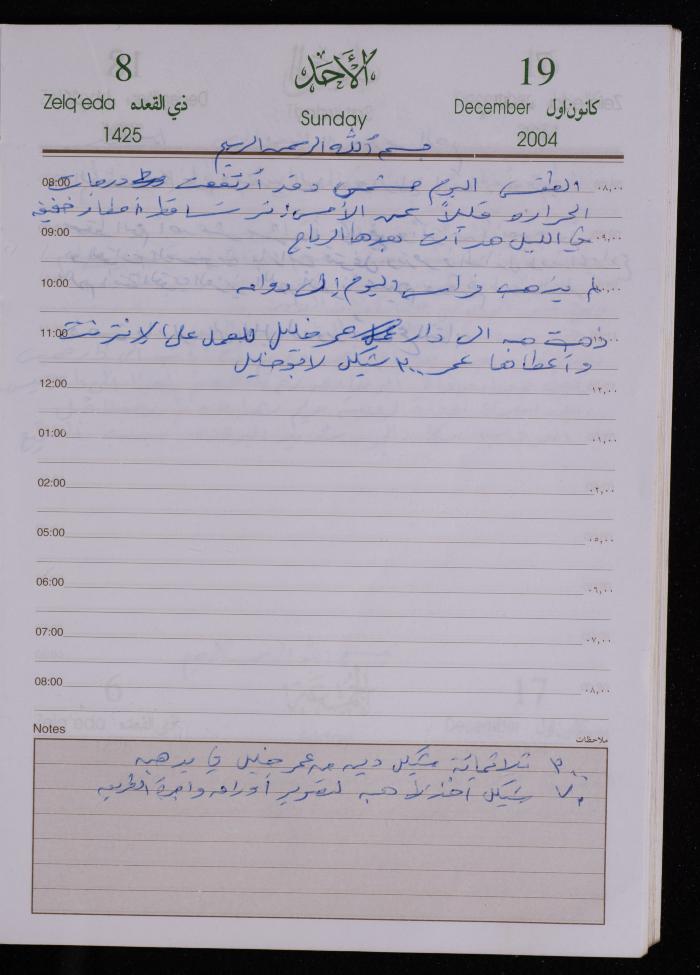 8
Zelq'eda ذي القعده
1425
الأحد
Sunday
19
December كانون اول
2004
بسم الله الرحمن الرحيم
08:00 الطقس اليوم مشمس وقد أرتفعت درجات ٠٨,٠٠
الحراره قليلاً عن الأمس إثر تساقط أمطار خفيفه
09:00 في الليل هدأت بعدها الرياح ٠٩,٠٠
10:00 لم يذهب فراس اليوم إلى دوامه ١٠,٠٠
11:00 ذهبت هبه الى دار عمر خليل للعمل على الإنترنت
وأعطاها عمر ٣٠٠ شيكل لابو خليل
12:00 ١٢,٠٠
01:00 ٠١,٠٠
02:00 ٠٢,٠٠
05:00 ٠٥,٠٠
06:00 ٠٦,٠٠
07:00 ٠٧,٠٠
08:00 ٠٨,٠٠
Notes ملاحظات
٣٠٠ ثلاثمائة شيكل دين من عمر خليل في يد هبه
٧٠ شيكل أخذت هبه لتصوير أوراق واجرة الطريق